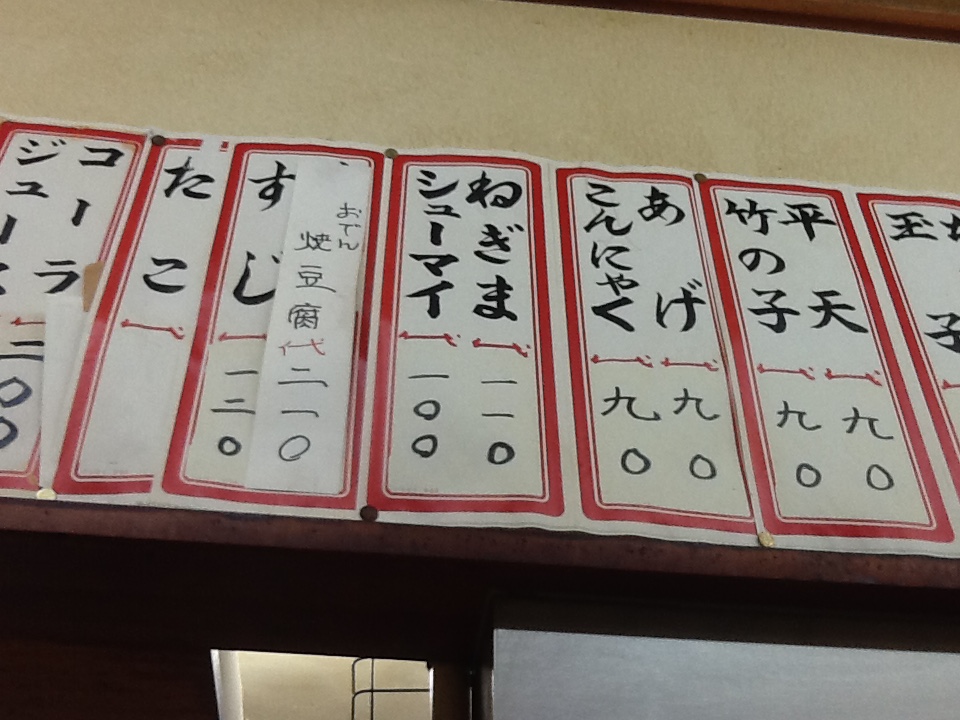 玉子
平天 九〇
竹の子 九〇
あげ 九〇
こんにゃく 九〇
ねぎま 一一〇
シューマイ 一〇〇
おでん
焼豆腐代二一〇
すじ 一二〇
たこ
コーラ
ジュース 二〇〇